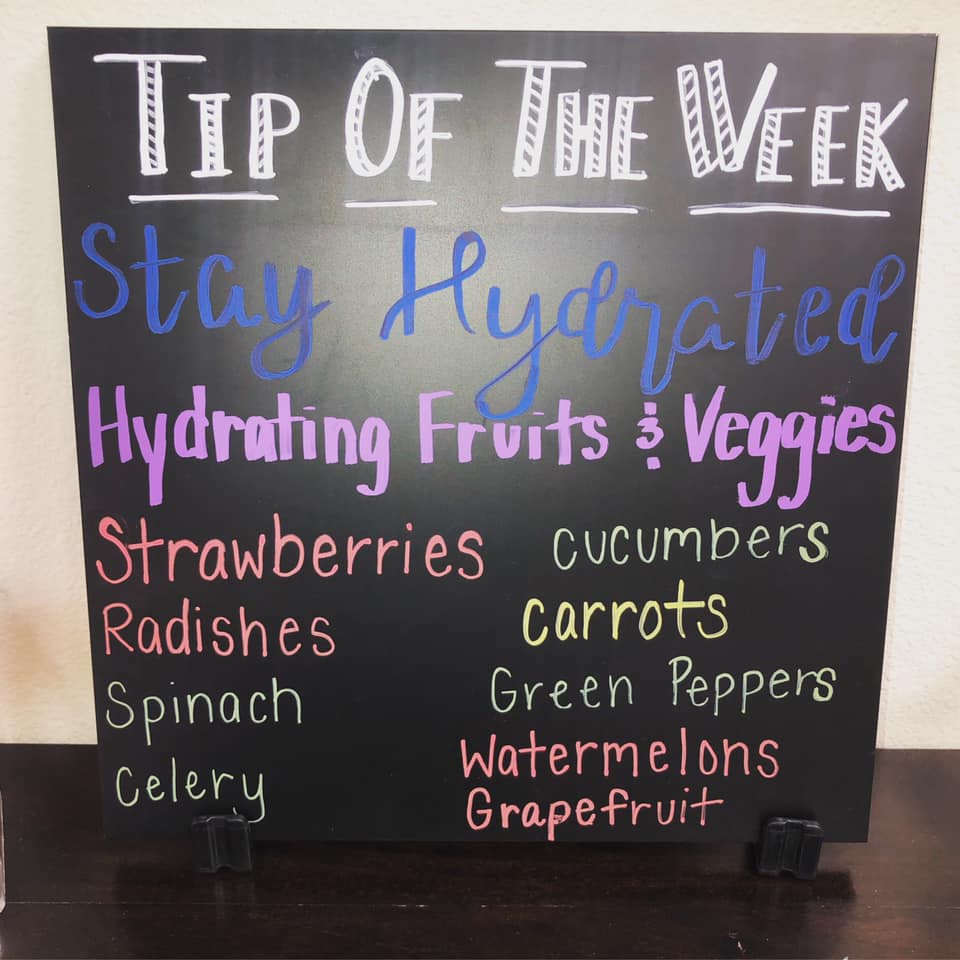 Tip Of The Week
Stay Hydrated
Hydrating Fruits & Veggies
Strawberries
Radishes
Spinach
Celery
cucumbers
carrots
Green Peppers
Watermelons
Grapefruit